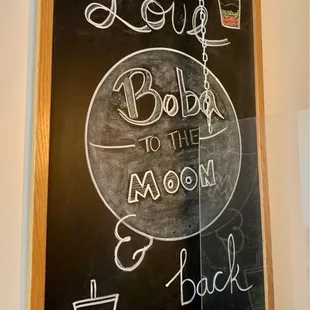 Love
Boba
TO THE
MOON
&
back